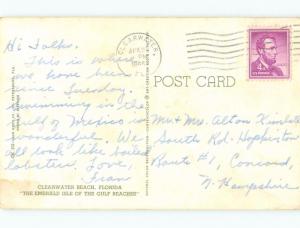 CLEARWATER,
APR
Hi Folks.
This is where
we have been
since Tuesday.
Swimming in the
Gulf of Mexico is
wonderful. We
all look like boiled
lobsters. Love,
Fran
POST CARD
Mr & Mrs. Alton Kimball
South Rd. - Hopkinton
Route #1, Concord,
N. Hampshire
4¢
CLEARWATER BEACH, FLORIDA
"THE EMERALD ISLE OF THE GULF BEACHES"